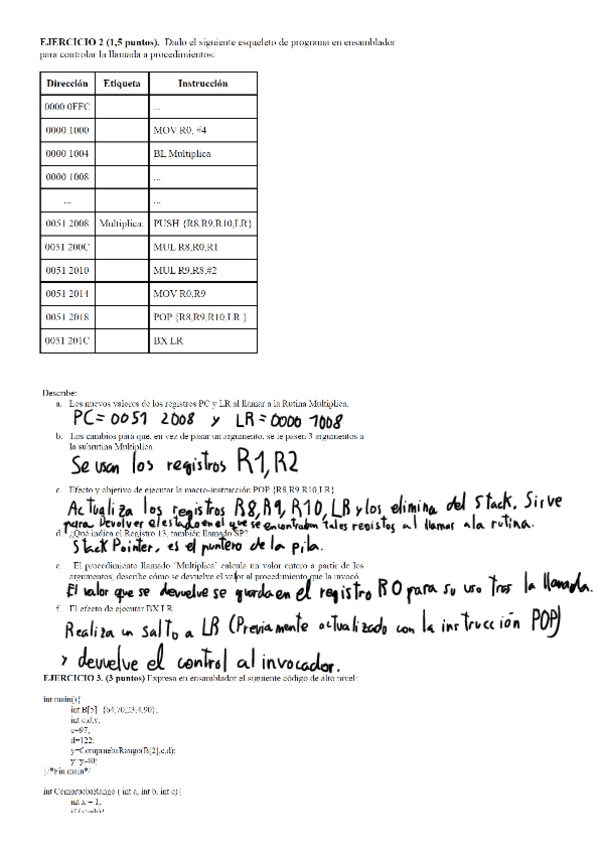 EJERCICIO 2 (1,5 puntos). Dado el siguiente esqueleto de programa en ensamblador
para controlar la llamada a procedimientos:
Dirección Etiqueta Instrucción
0000 0FFC ...
0000 1000 MOV R0, #4
0000 1004 BL Multiplica
0000 1008 ...
... ...
0051 2008 Multiplica: PUSH {R8,R9,R10,LR}
0051 200C MUL R8,R0,R1
0051 2010 MUL R9,R8,#2
0051 2014 MOV R0,R9
0051 2018 POP {R8,R9,R10,LR }
0051 201C BX LR
Describe:
a. Los nuevos valores de los registros PC y LR al llamar a la Rutina Multiplica.
PC = 0051 2008 y LR = 0000 1008
b. Los cambios para que, en vez de pasar un argumento, se le pasen 3 argumentos a
la subrutina Multiplica.
Se usan los registros R1, R2
c. Efecto y objetivo de ejecutar la macro-instrucción POP {R8,R9,R10,LR}
Actualiza los registros R8, R9, R10, LR y los elimina del Stack. Sirve
para Devolver el estado en el que se encontraban tales registos al llamar a la rutina.
d. ¿Qué indica el Registro 13, también llamado SP?
Stack Pointer, es el puntero de la pila.
e. El procedimiento llamado 'Multiplica' calcula un valor entero a partir de los
argumentos, describe cómo se devuelve el valor al procedimiento que la invocó.
El valor que se devuelve se guarda en el registro R0 para su uso tras la llamada.
f. El efecto de ejecutar BX LR
Realiza un salto a LR (Previamente actualizado con la instrucción POP)
y devuelve el control al invocador.
EJERCICIO 3. (3 puntos) Expresa en ensamblador el siguiente código de alto nivel:
int main(){
int B[5]={64,70,23,4,90};
int c,d,y;
c=97;
d=122;
y=CompruebaRango(B[2],c,d);
y=y-40;
}/*Fin main*/
int CompruebaRango ( int a, int b, int c){